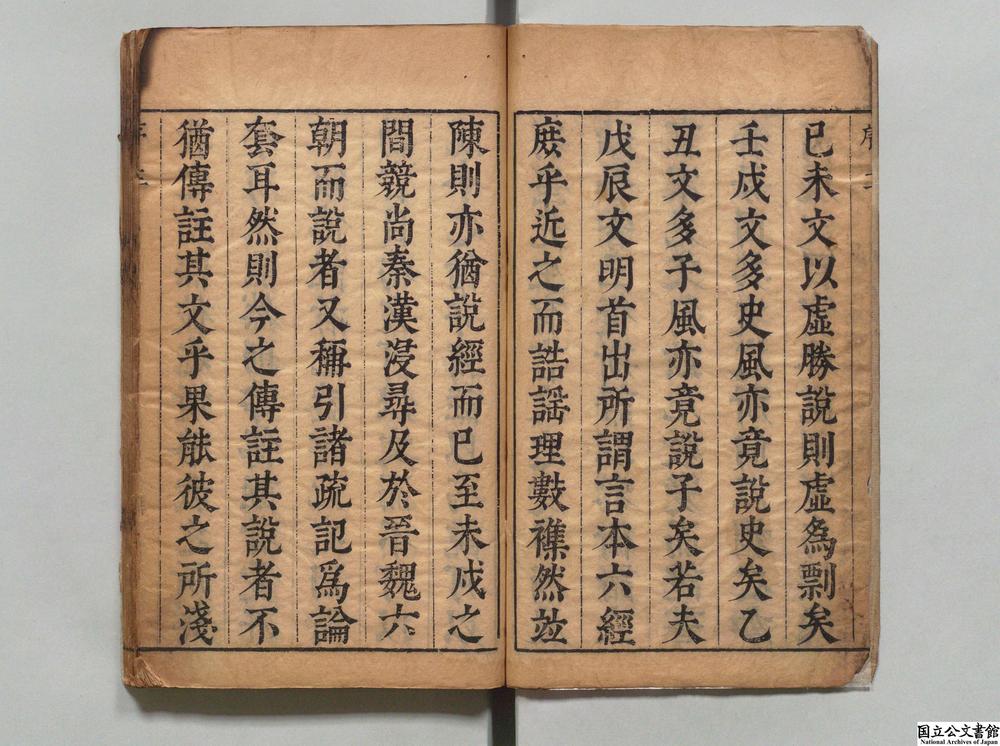 已未文以虛勝說則虛為剽矣
壬戍文多史風亦竟說史矣乙
丑文多子風亦竟說子矣若夫
戊辰文明首出所謂言本六經
庶乎近之而誥謡理數襍然竝
陳則亦猶說經而已至未戍之
間競尚秦漢浸尋及於晉魏六
朝而說者又稱引諸疏記爲論
套耳然則今之傳註其說者不
猶傳註其文乎果能彼之所淺
序
国立公文書館
National Archives of Japan